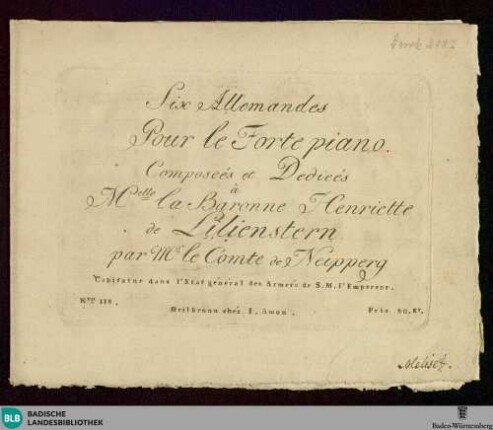 Six Allemandes
Pour le Forte piano.
Composeés et Dedieés
à
Melle la Baronne Henriette
de Lilienstern
par Mr le Comte de Neipperg
Capitaine dans l'Etat général des Armeés de S.M. l'Empereur.
Nro 118.
Heilbronn chez I. Amon.
Prix 30. Kr.
BLB BADISCHE
LANDESBIBLIOTHEK
Baden-Württemberg